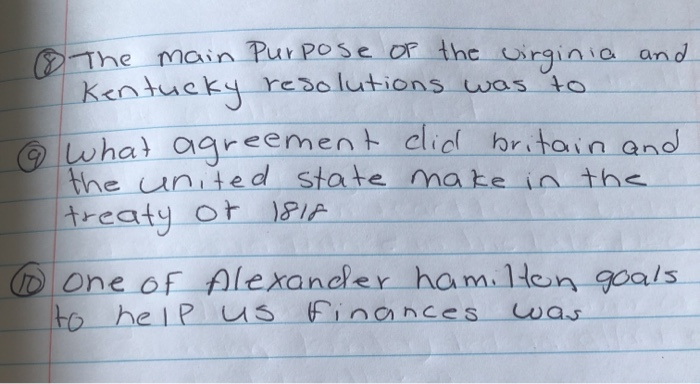 ⑧ The main Purpose of the virginia and
Kentucky resolutions was to
⑨ What agreement did britain and
the united state make in the
treaty of 1818
⑩ One of Alexander hamilton goals
to help us finances was